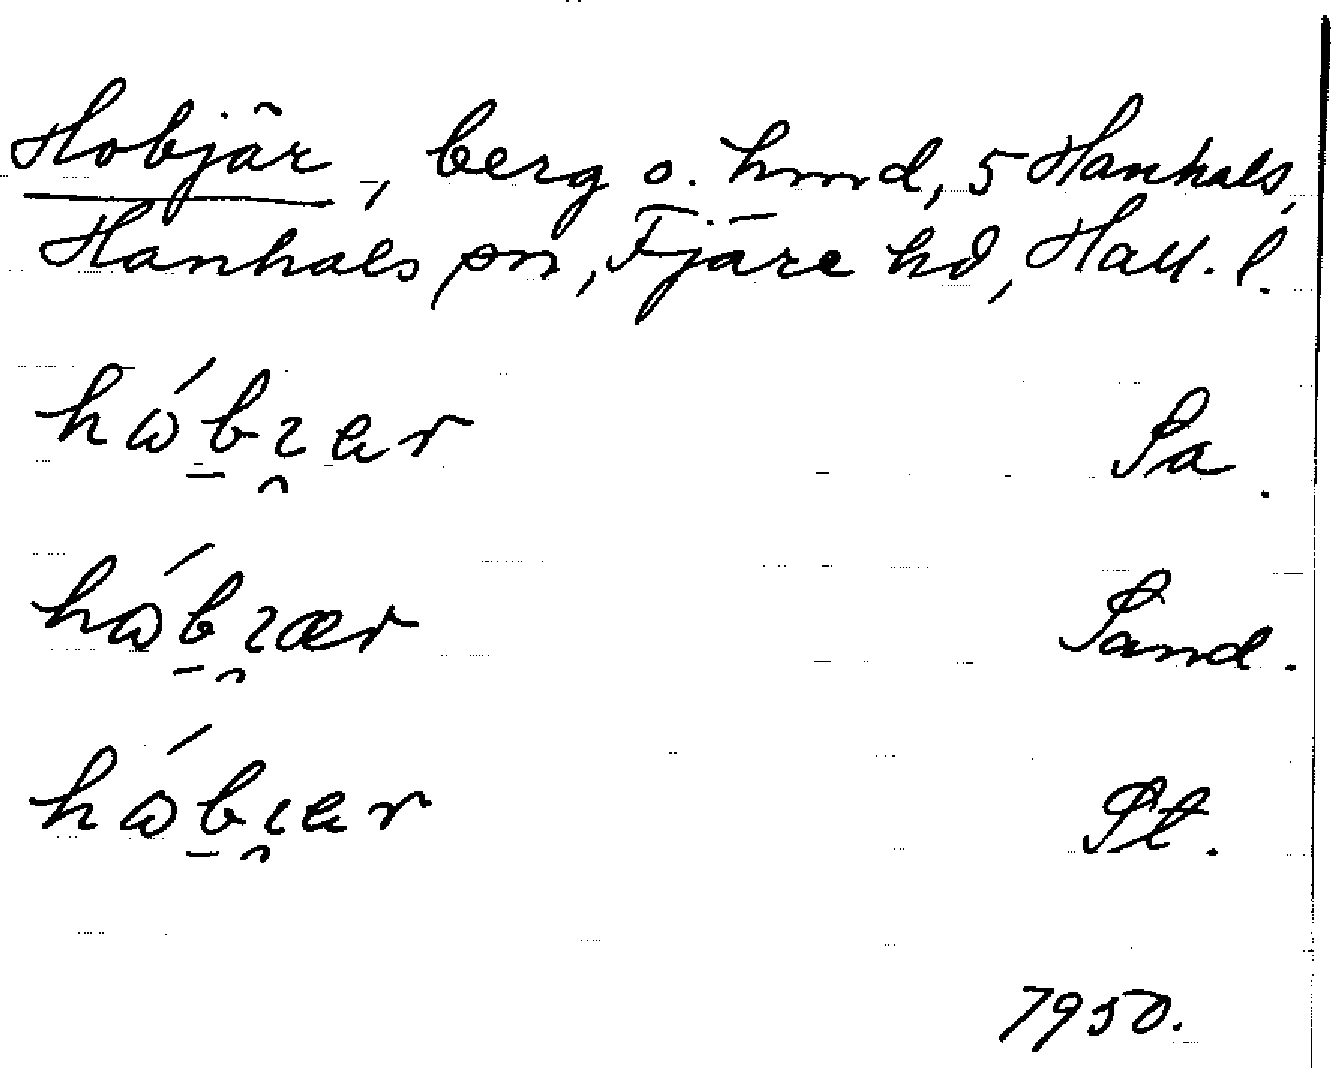 Hobjär, berg o. hmd, 5 Hanhals,
Hanhals sn, Fjäre hd, Hall. l.
hɷ́bɩ̯ar Sa.
hɷ́bɩ̯ær Sand.
hɷ́bɩ̯ar St.
7950.